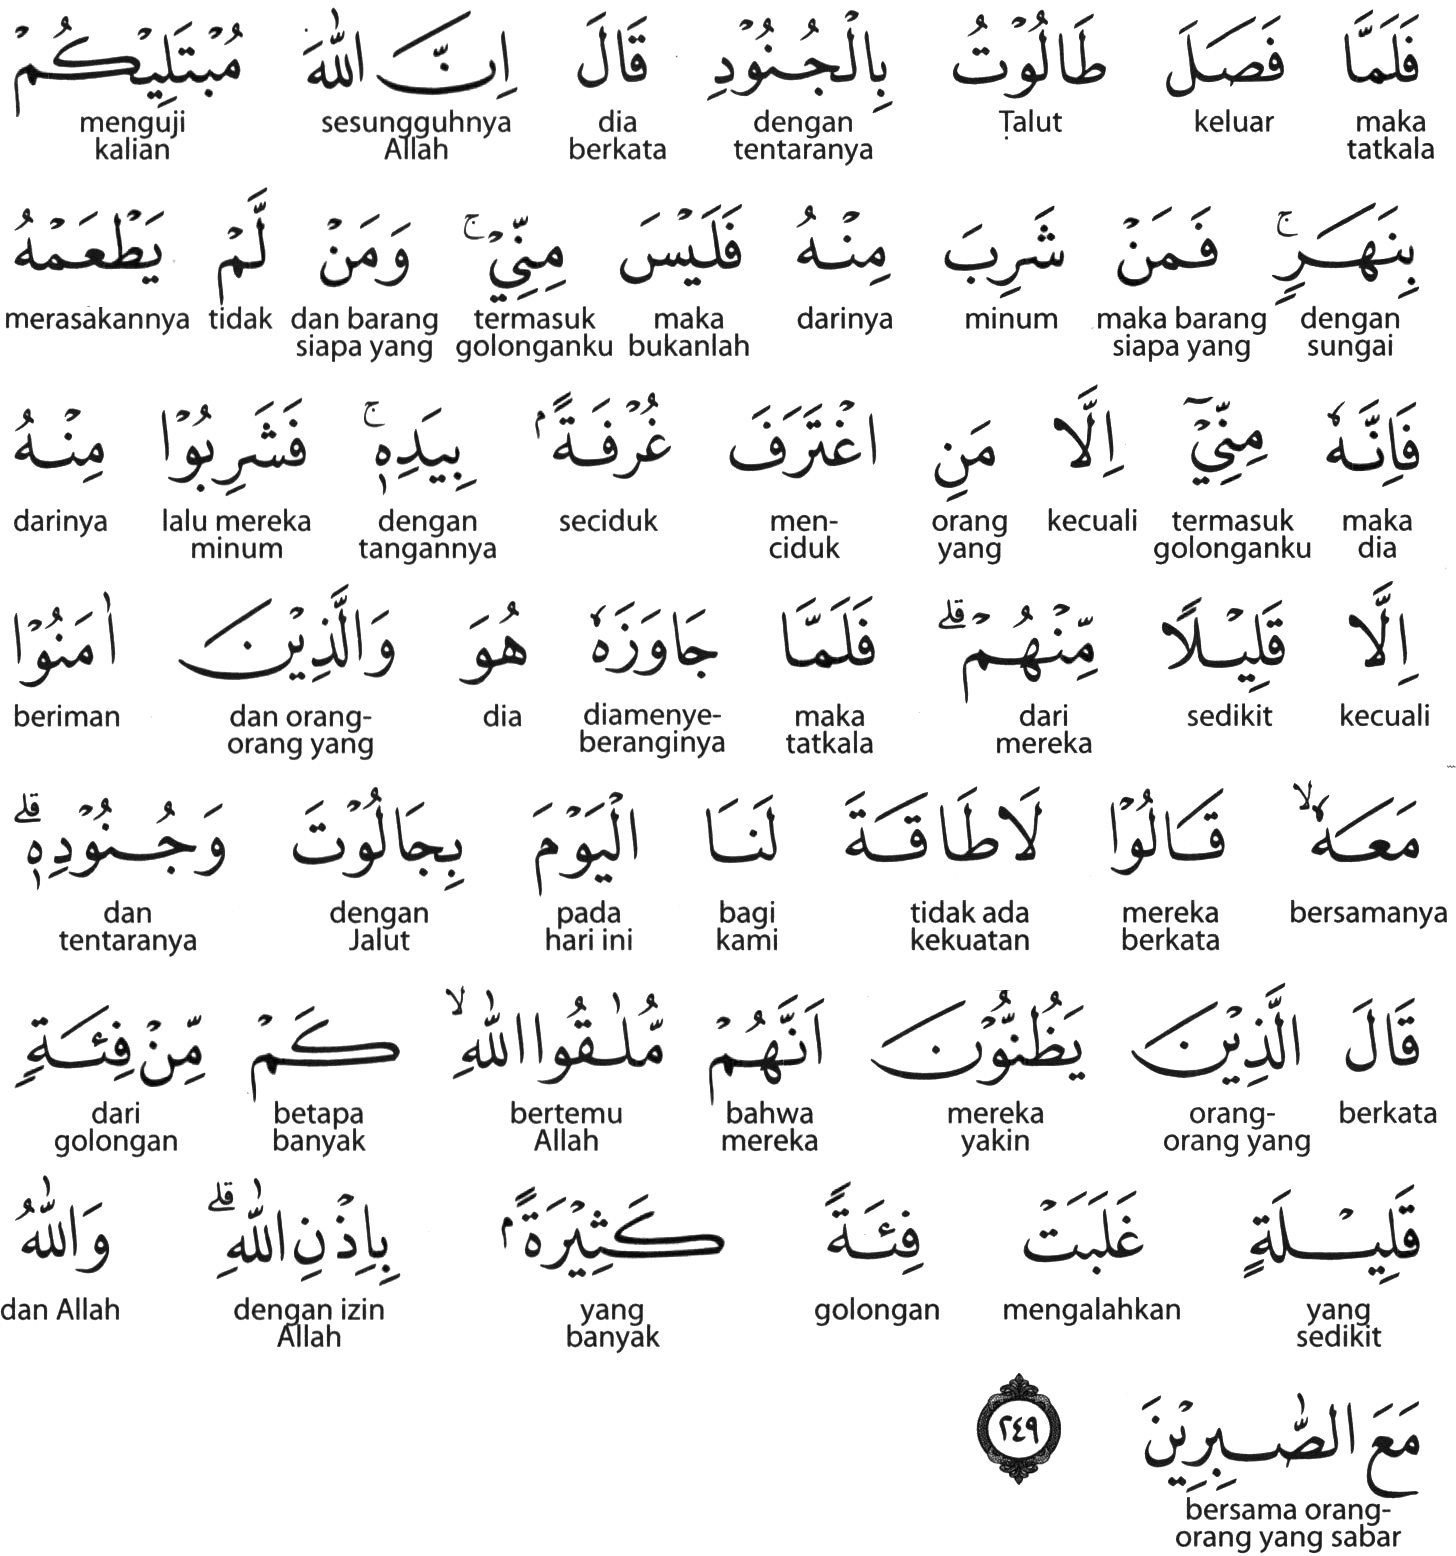 فَلَمَّا فَصَلَ طَالُوْتُ بِالْجُنُوْدِ قَالَ اِنَّ اللّٰهَ مُبْتَلِيْكُمْ
maka keluar Ṭalut dengan dia sesungguhnya menguji
tatkala tentaranya berkata Allah kalian
بِنَهَرٍۚ فَمَنْ شَرِبَ مِنْهُ فَلَيْسَ مِنِّيْۚ وَمَنْ لَّمْ يَطْعَمْهُ
dengan maka barang minum darinya maka termasuk dan barang tidak merasakannya
sungai siapa yang bukanlah golonganku siapa yang
فَاِنَّهٗ مِنِّيْٓ اِلَّا مَنِ اغْتَرَفَ غُرْفَةًۢ بِيَدِهٖۚ فَشَرِبُوْا مِنْهُ
maka termasuk kecuali orang men- seciduk dengan lalu mereka darinya
dia golonganku yang ciduk tangannya minum
اِلَّا قَلِيْلًا مِّنْهُمْۗ فَلَمَّا جَاوَزَهٗ هُوَ وَالَّذِيْنَ اٰمَنُوْا
kecuali sedikit dari maka diamenye- dia dan orang- beriman
mereka tatkala beranginya orang yang
مَعَهٗۙ قَالُوْا لَا طَاقَةَ لَنَا الْيَوْمَ بِجَالُوْتَ وَجُنُوْدِهٖۗ
bersamanya mereka tidak ada bagi pada dengan dan
berkata kekuatan kami hari ini Jalut tentaranya
قَالَ الَّذِيْنَ يَظُنُّوْنَ اَنَّهُمْ مُّلٰقُوا اللّٰهِۙ كَمْ مِّنْ فِئَةٍ
berkata orang- mereka bahwa bertemu betapa dari
orang yang yakin mereka Allah banyak golongan
قَلِيْلَةٍ غَلَبَتْ فِئَةً كَثِيْرَةًۢ بِاِذْنِ اللّٰهِۗ وَاللّٰهُ
yang mengalahkan golongan yang dengan izin dan Allah
sedikit banyak Allah
مَعَ الصّٰبِرِيْنَ ٢٤٩
bersama orang-
orang yang sabar